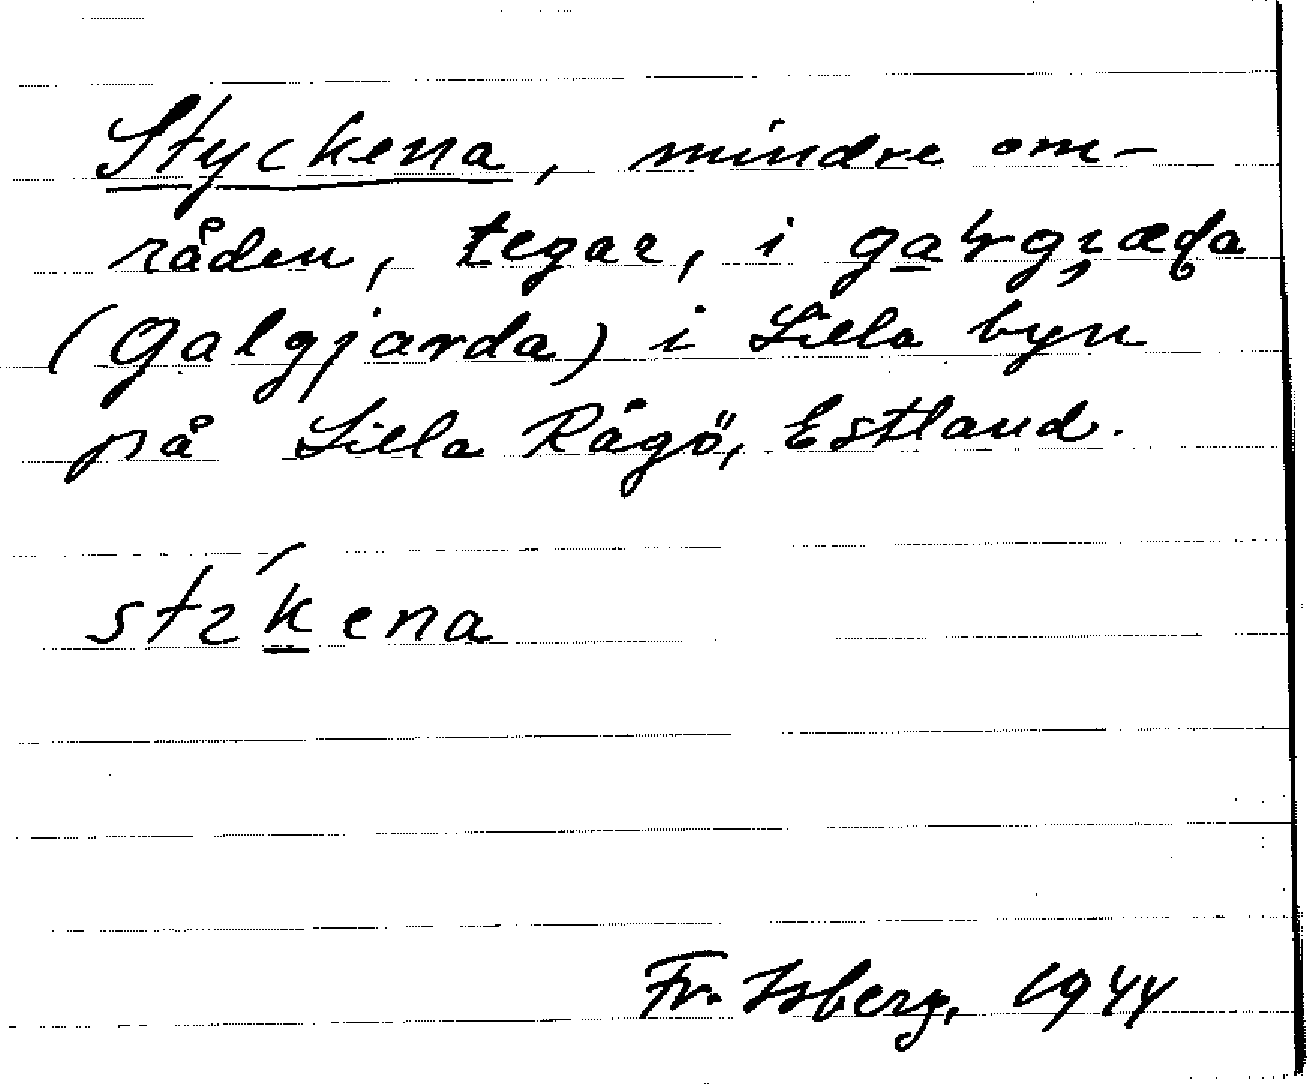 Styckena, mindre om-
råden, tegar, i
(Galgjarda) i Lilla byn
på Lilla Rågö, Estland.
Fr. Isberg, 1944